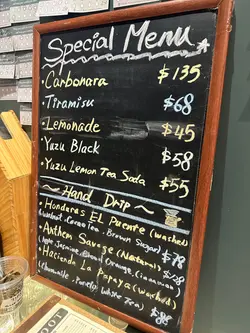 Special Menu
• Carbonara $135
• Tiramisu $68
• Lemonade $45
Yuzu Black $58
• Yuzu Lemon Tea Soda $55
~ Hand Drip ~
• Honduras EL Puente (washed)
(Walnut, Cocoa Tea, Brown Sugar) $78
• Anthem Savage (Natural)
Jasmine, Orange, Cinnamon) $58
• Hacienda La Papaya (washed)
(Chamomile, Pomelo, White Tea) $88